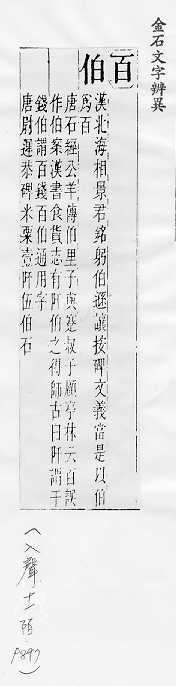 金石文字辨異
百
伯
漢北海相景君銘躬伯遜讓按碑文義當是以伯
爲百
唐石經公羊傳伯里子與蹇叔子顧亭林云百誤
作伯案漢書食貨志有阡伯之得師古曰阡謂千
錢伯謂百錢百伯通用字
唐尉遲恭碑米粟壹阡伍伯石
(入聲十一陌 P897)